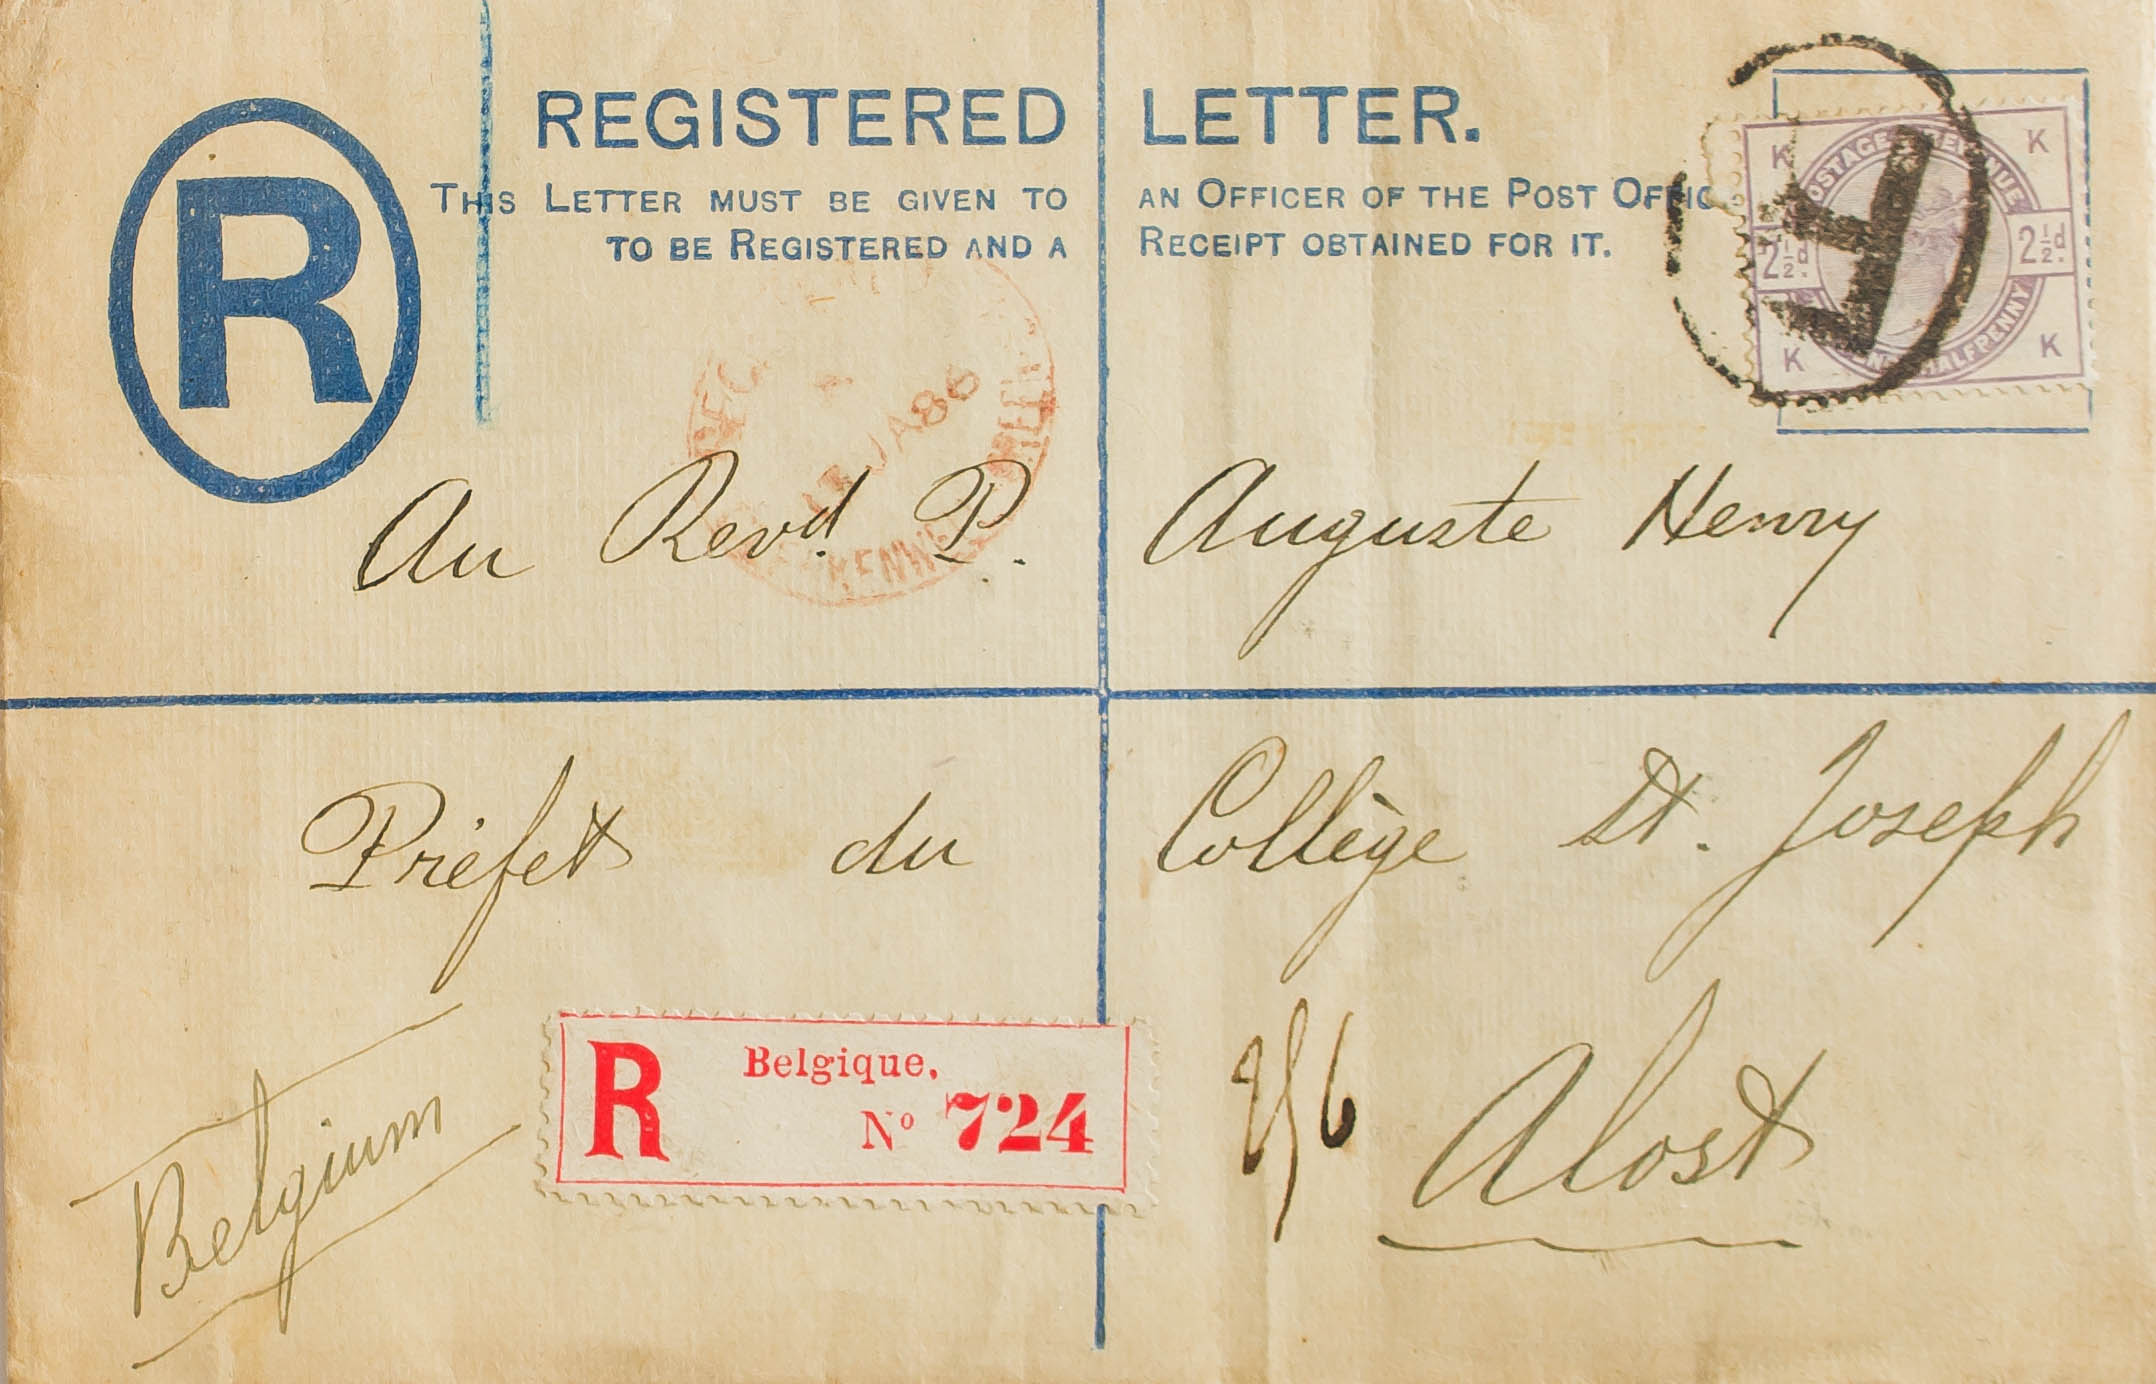 R
REGISTERED LETTER.
THIS LETTER MUST BE GIVEN TO AN OFFICER OF THE POST OFFIC
TO BE REGISTERED AND A RECEIPT OBTAINED FOR IT.
POSTAGE
K K
2½d. 2½d.
K K
HALFPENNY
JA 86
Au Revd. P. Auguste Henry
Préfet du Collège St. Joseph
Alost
Belgium
R Belgique.
Nº 724